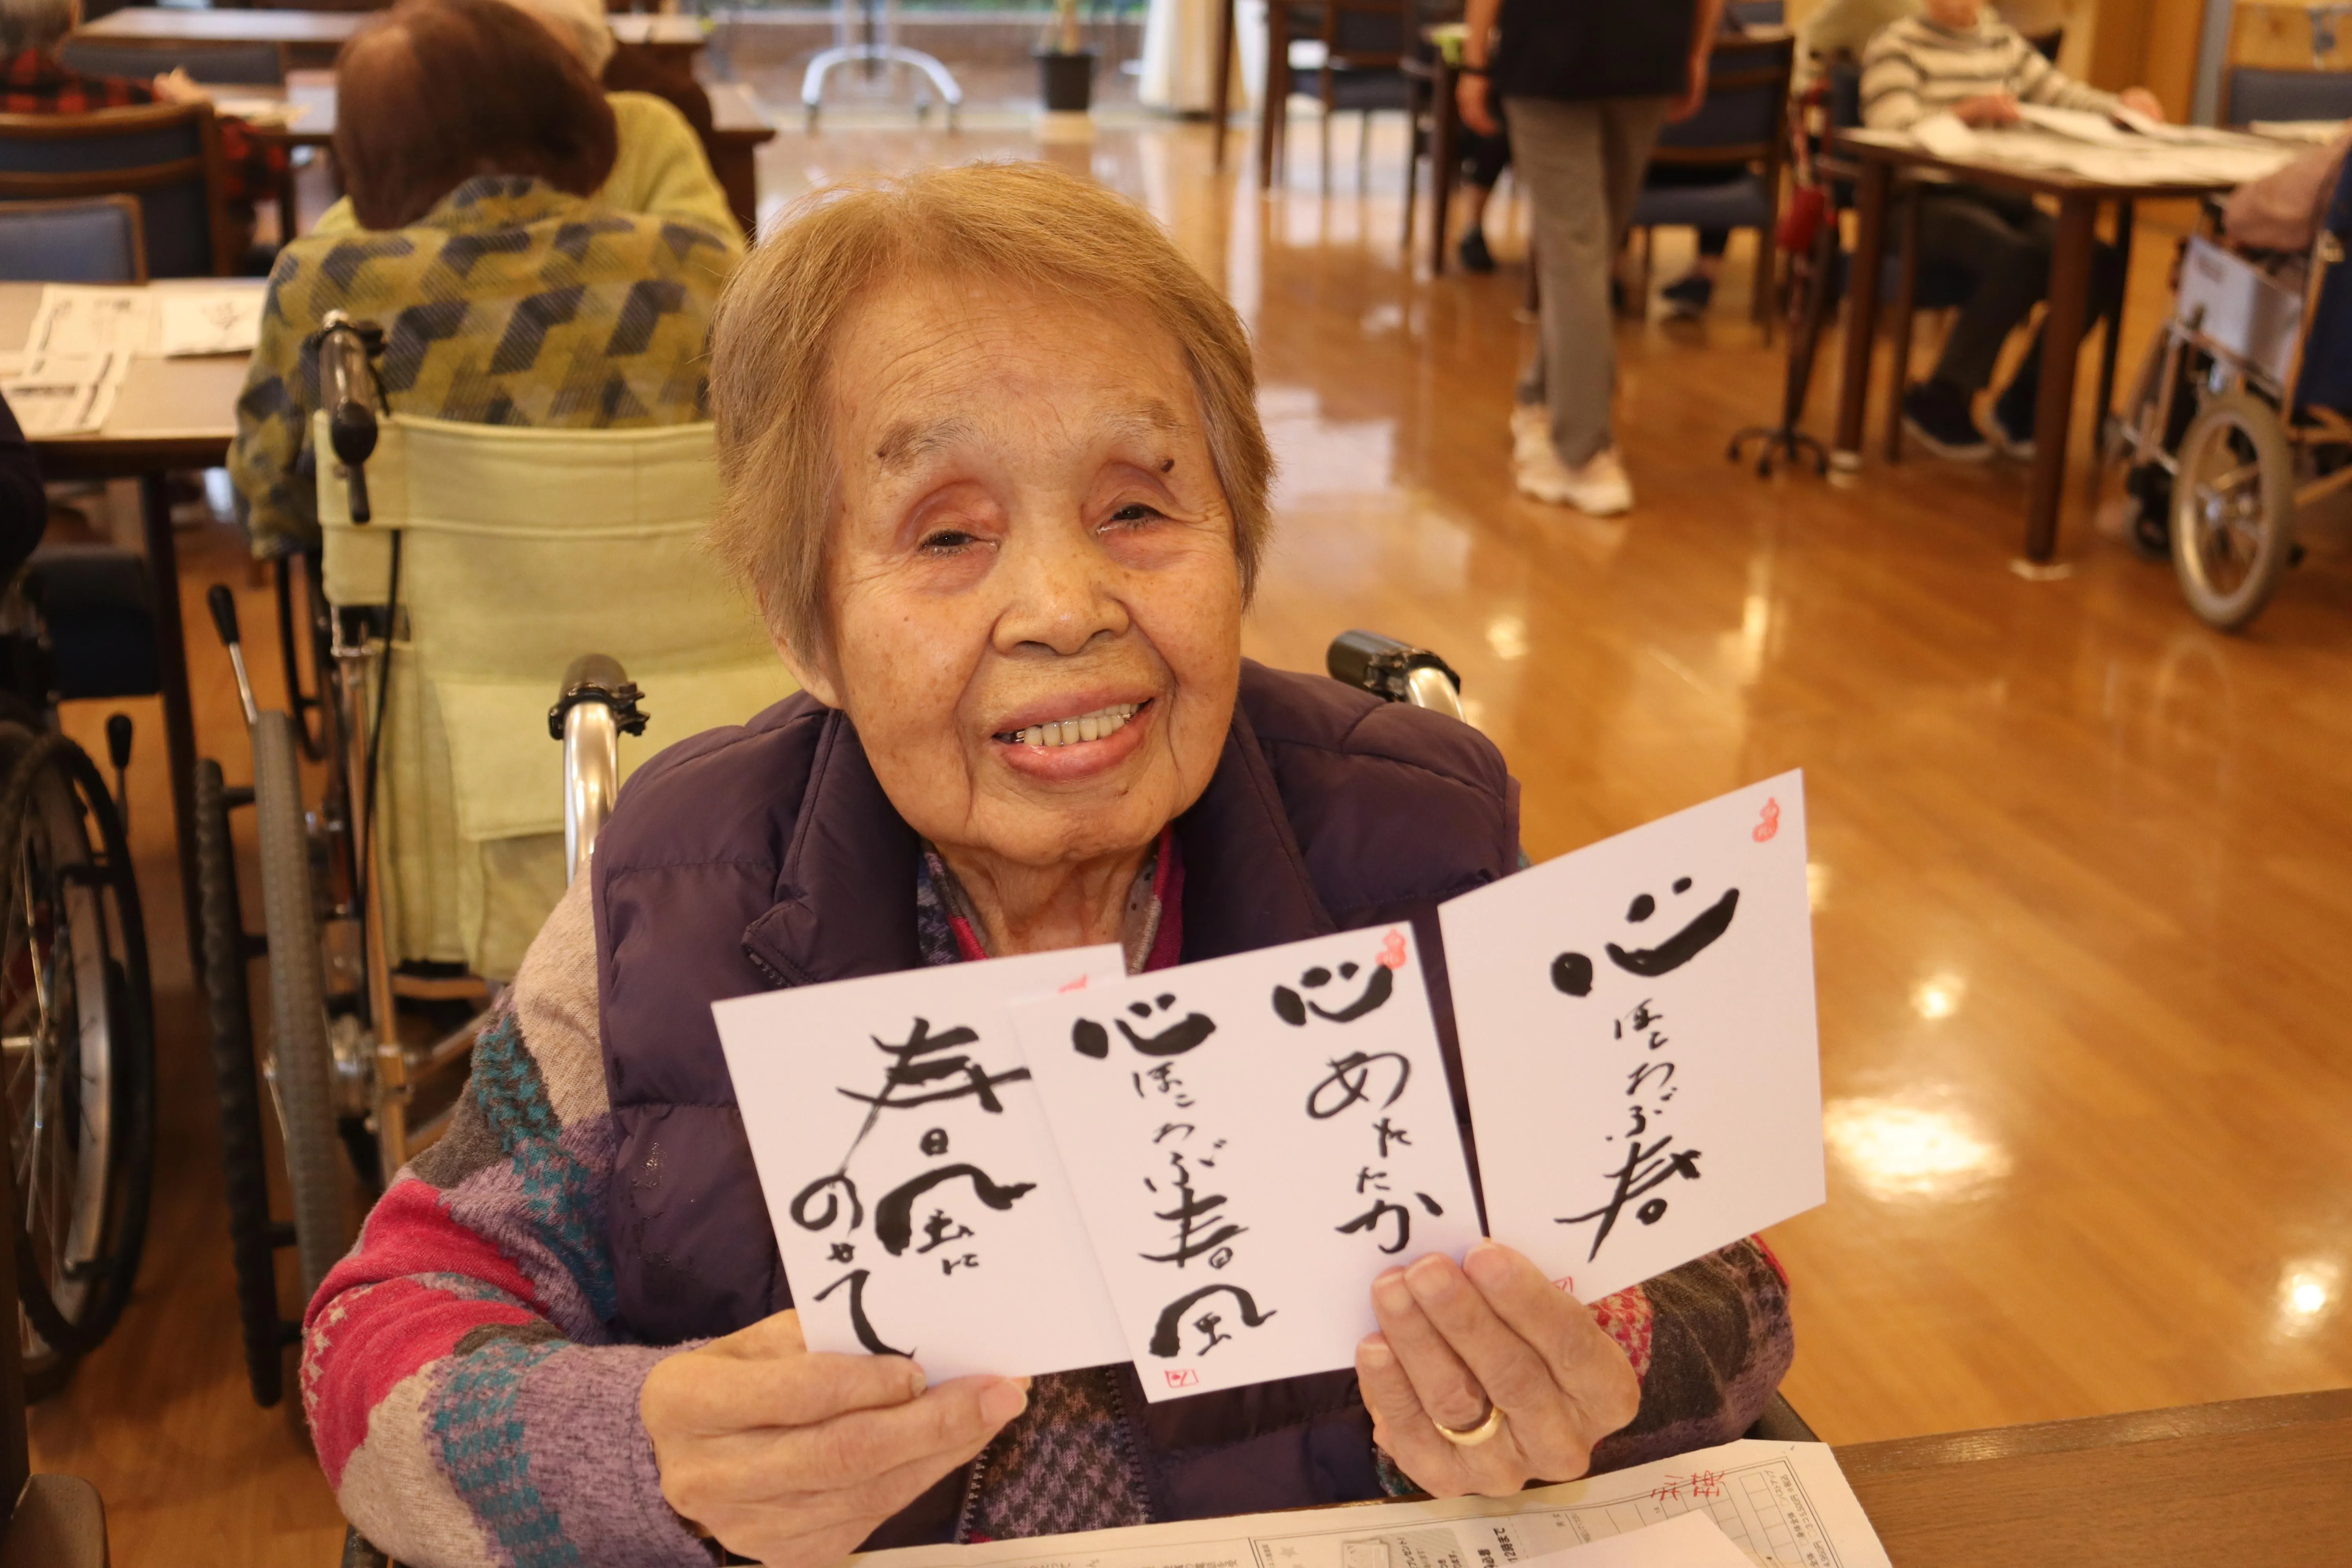 春風に
のせて
心あたたか
心ほころぶ春風
心ほころぶ春
12時まで